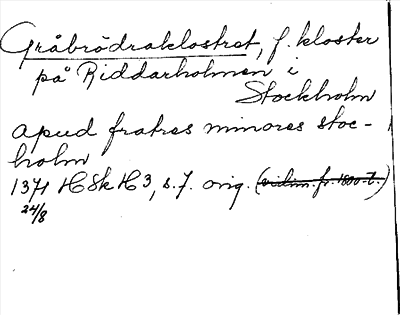 Gråbrödraklostret, f. kloster
på Riddarholmen i
Stockholm
apud fratres minores stoc-
holm
1371 HSk H3, s. 7. orig. (vidim. fr. 1800-t.)
24/8